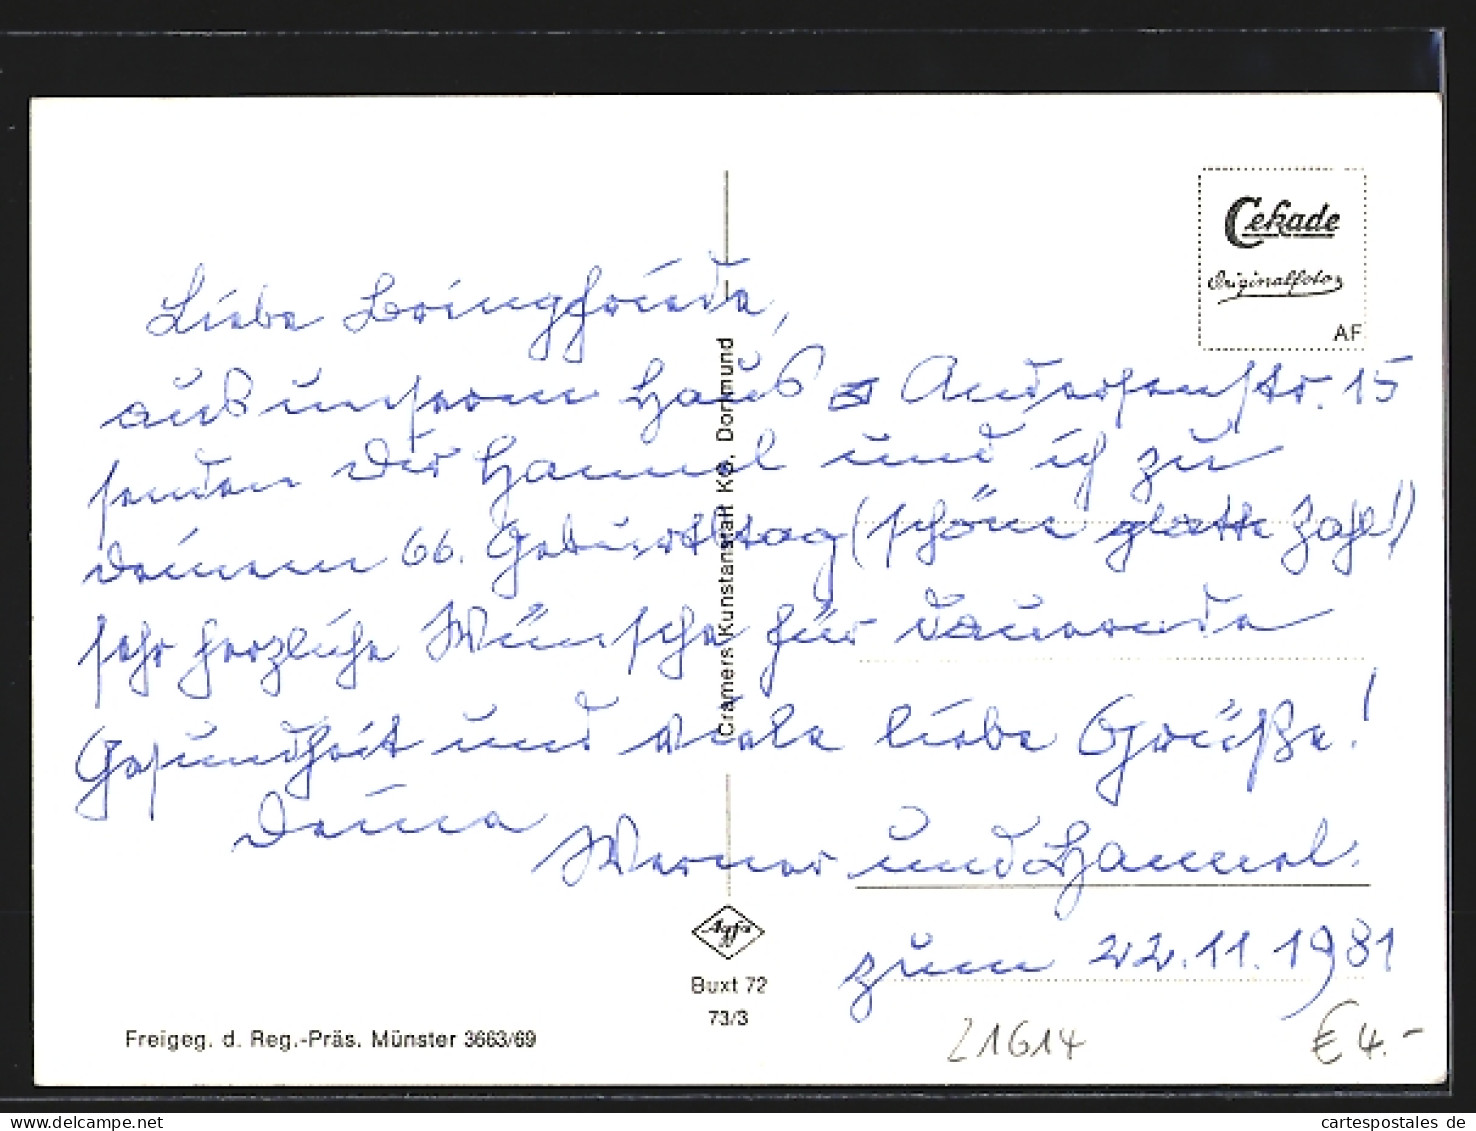 Cekade
Originalfoto
AF
Liebe
aus unserem Haus Andersenstr. 15
senden Dir Hannel und ich zu
Deinem 66. Geburtstag (schöne glatte Zahl!)
sehr herzliche Wünsche für dauernde
Gesundheit und viele liebe Grüße!
Deine
Werner und Hannel.
zum 22.11.1981
Cramers Kunstanstalt KG. Dortmund
Agfa
Buxt 72
73/3
Freigeg. d. Reg.-Präs. Münster 3663/69
21614
€ 4.-
cartespostales de